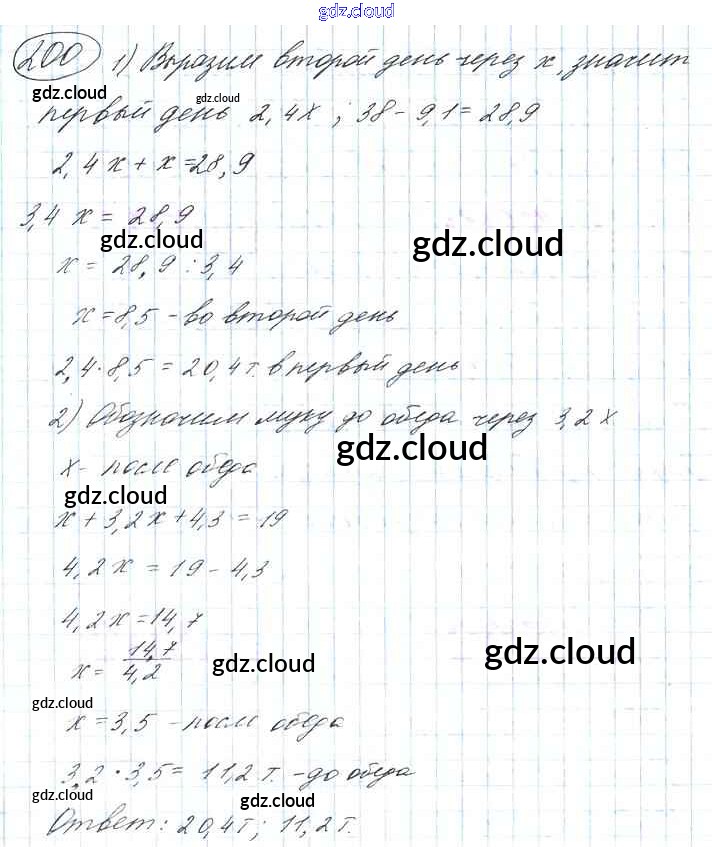 gdz.cloud
200 1) Выразим второй день через x, значит
gdz.cloud gdz.cloud
первый день 2,4x ; 38 - 9,1 = 28,9
2,4x + x = 28,9
3,4 x = 28,9
gdz.cloud gdz.cloud
x = 28,9 : 3,4
x = 8,5 - во второй день
2,4 · 8,5 = 20,4 т. в первый день
2) Обозначим муку до обеда через 3,2x
gdz.cloud
x - после обеда
gdz.cloud
x + 3,2x + 4,3 = 19
4,2x = 19 - 4,3
4,2x = 14,7
x = 14,7/4,2
gdz.cloud gdz.cloud
gdz.cloud
x = 3,5 - после обеда
3,2 · 3,5 = 11,2 т. - до обеда
gdz.cloud gdz.cloud
Ответ: 20,4т; 11,2т.